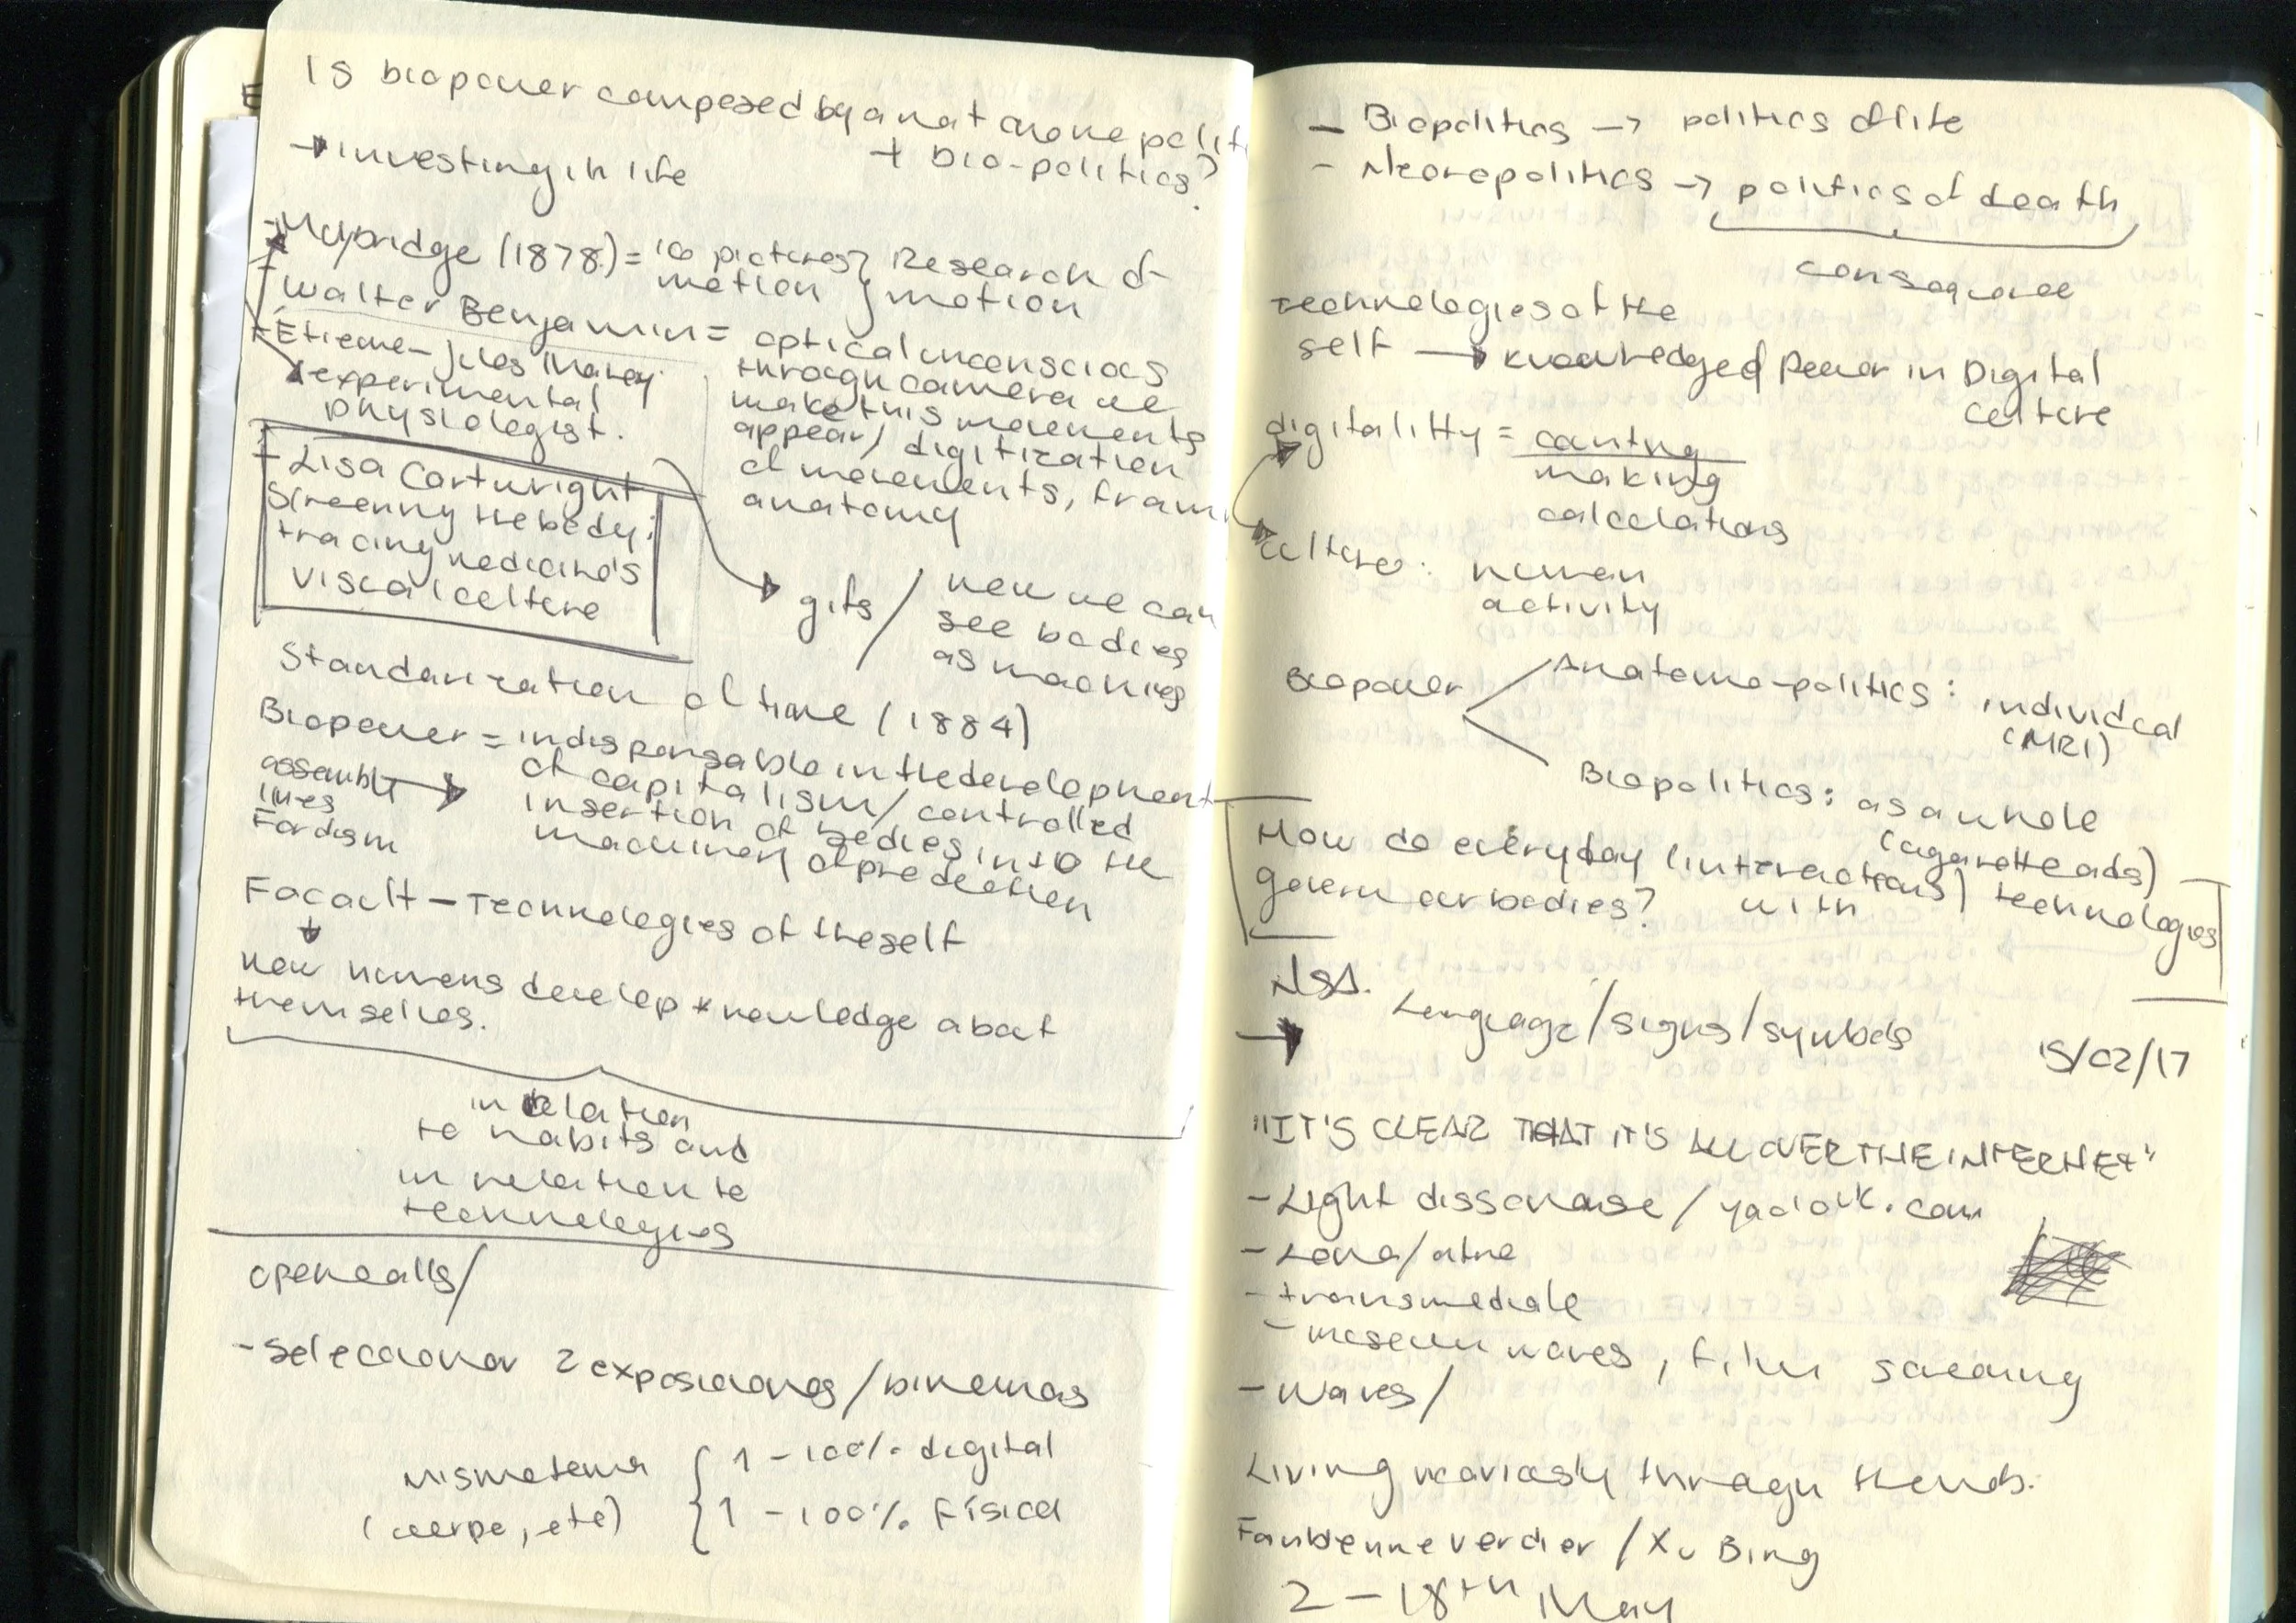 Is biopower composed by anatomo polit
→ investing in life + bio-politics?
- Muybridge (1878) = 16 pictures } Research of
motion } motion
- Walter Benjamin = optical unconscious
through camera we
make this movements
appear / digitization
of movements, fram
anatomy
- Etienne-Jules Marey
experimental
physiologist.
- Lisa Cartwright
Screening the body:
tracing medicine's
visual culture
gifs / now we can
see bodies
as machines
Standarization of time (1884)
Biopower = indispensable in the development
of capitalism / controlled
insertion of bodies into the
machinery of production
assembly →
lines
Fordism
Focault - Technologies of the self
↓
how humans develop knowledge about
themselves.
in relation
to habits and
in relation to
technologies
open calls/
- seleccionar 2 exposiciones / bienemas
mismo tema { 1 - 100% digital
(cuerpo, etc) { 1 - 100% física
- Biopolitics → politics of life
- Necropolitics → politics of death
consequence
technologies of the
self → knowledge of Power in Digital
culture
digitality = counting
making
calculations
culture: human
activity
Biopower
Anatomo-politics: individual
(MRI)
Biopolitics: as a whole
(cigarette ads)
How do everyday (interactions) technologies
govern our bodies? with
NSA.
→ Language/signs/symbols
15/02/17
"IT'S CLEAR THAT IT'S ALL OVER THE INTERNET"
- Light dissonanse /
- transmediale
- museum waves, film screening
- Waves/
Living vicariously through trends.
Fabienne Verdier / Xu Bing
2 - 18th May